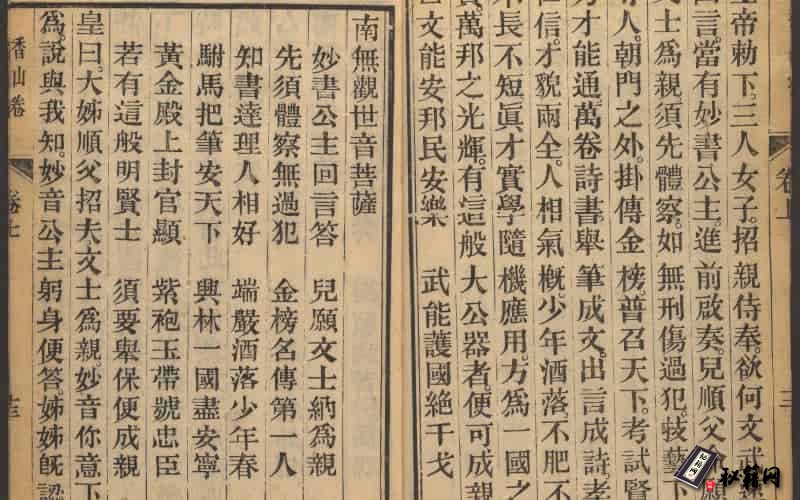 帝勅下。三人女子。招親侍奉。欲何文武
言。當有妙書公主。進前啟奏。兒順父
文士爲親。須先體察。如無刑傷過犯。技藝
人。朝門之外。掛傳金榜。普召天下。考試賢
才能通萬卷詩書。舉筆成文。出言成詩。孝
仁信。才貌兩全。人相氣概。少年洒落。不肥不
不長不短。眞才實學。隨機應用。方爲一國之
萬邦之光輝。有這般大公器者。便可成親
文能安邦民安樂 武能護國絶干戈
南無觀世音菩薩
妙書公主回言答 兒願文士納爲親
先須體察無過犯 金榜名傳第一人
知書達理人相好 端嚴洒落少年春
駙馬把筆安天下 興林一國盡安寧
黃金殿上封官顯 紫袍玉帶號忠臣
若有這般明賢士 須要舉保便成親
皇曰。大姊順父招夫。文士爲親。妙音你意下
爲。說與我知。妙音公主躬身便答。姊姊旣認
香山卷 卷七 十三
卷上 三
秘籍网